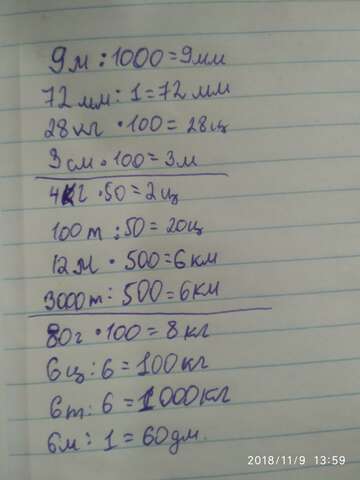 9м : 1000 = 9мм
72мм : 1 = 72 мм
28кг · 100 = 28ц
3 см · 100 = 3м
4кг · 50 = 2ц
100т : 50 = 20ц
12м · 500 = 6км
3000т : 500 = 6км
80г · 100 = 8кг
6ц : 6 = 100кг
6т : 6 = 1000кг
6м : 1 = 60дм.
2018/11/9 13:59